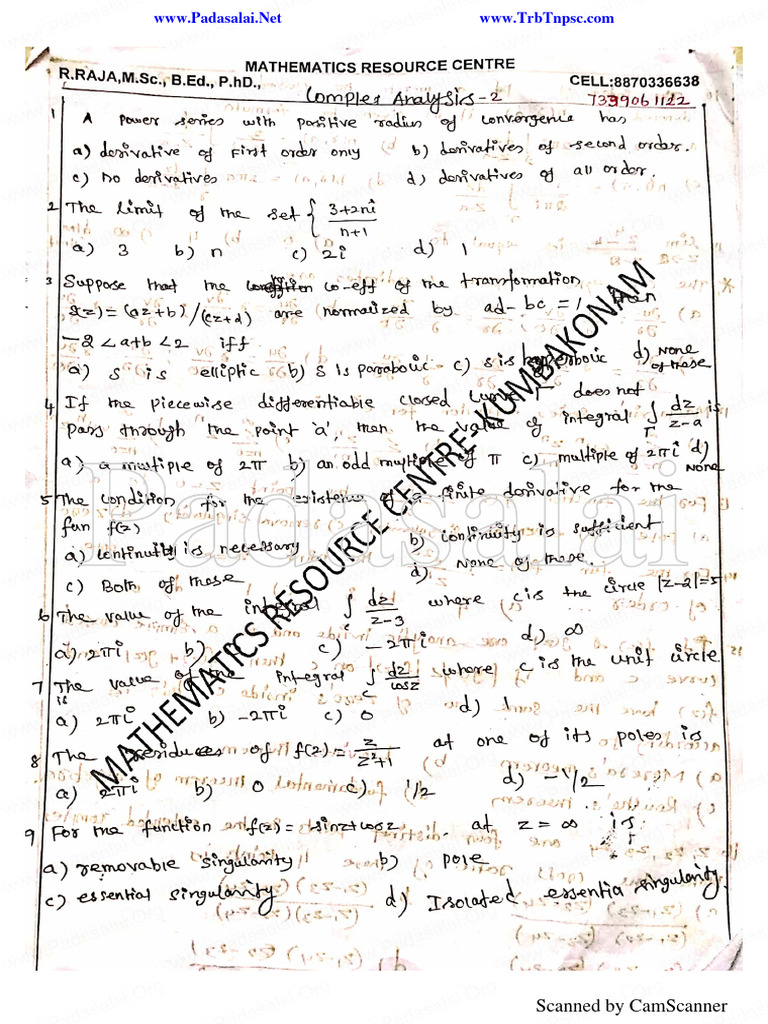 www.Padasalai.Net www.TrbTnpsc.com
MATHEMATICS RESOURCE CENTRE
R.RAJA,M.Sc., B.Ed., P.hD., CELL:8870336638
Complex Analysis-2 7339061122
1 A power series with positive radius of convergence has
a) derivative of first order only b) derivatives of second order.
c) no derivatives d) derivatives of all order.
2 The limit of the set { 3+2ni / n+1
a) 3 b) n c) 2i d) 1
3 Suppose that the co-eff of the transformation
(z) = (az+b)/(cz+d) are normalized by ad-bc = 1, then
-2 < a+b < 2 iff
a) S is elliptic b) S is parabolic c) S is hyperbolic d) none of these
4 If the piecewise differentiable closed curve Γ does not
pass through the point 'a', then the value of integral ∫Γ dz/z-a is
a) a multiple of 2π b) an odd multiple of π c) multiple of 2πi d) None
5 The condition for the existence of a finite derivative for the
fun f(z)
a) continuity is necessary b) continuity is sufficient
c) Both of these d) none of these.
6 The value of the integral ∫c dz/z-3 where c is the circle |z-2|=5
a) 2πi b) c) -2πi d) ∞
7 The value of the integral ∫c dz/cosz where c is the unit circle
is
a) 2πi b) -2πi c) 0 d) 1
8 The residues of f(z) = z/z²+1 at one of its poles is
a) 2πi b) 0 c) 1/2 d) -1/2
9 For the function f(z) = sinz+cosz at z = ∞ is
a) removable singularity b) pole
c) essential singularity d) Isolated essentia singularity.
MATHEMATICS RESOURCE CENTRE-KUMBAKONAM
Padasalai
Scanned by CamScanner